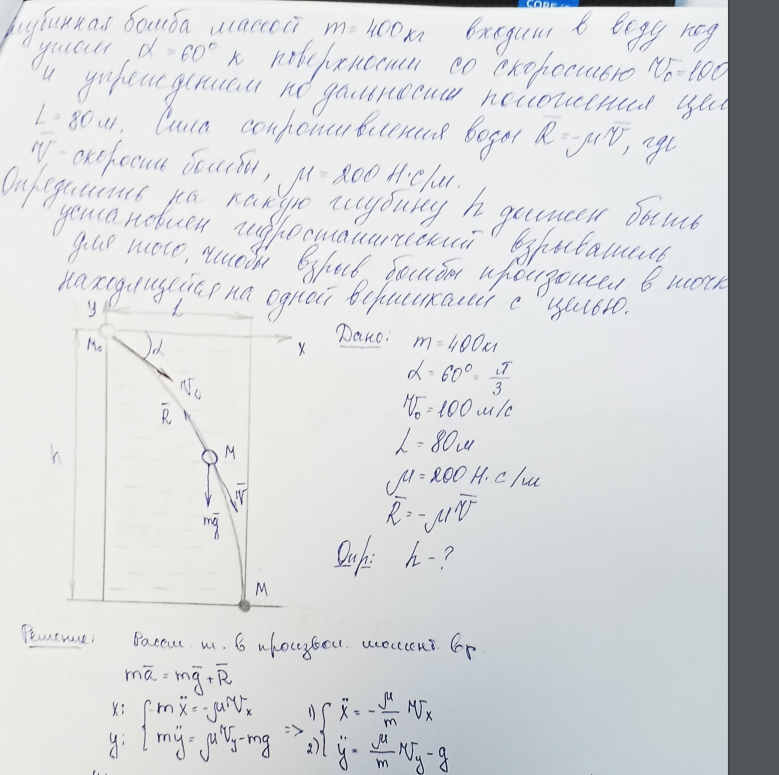 глубинная бомба массой m=400кг входит в воду под
углом α=60° к поверхности со скоростью V₀=100
и упреждением по дальности положения цел
L=80м. Сила сопротивления воды R̄=-μV̄, где
V̄-скорость бомбы, μ=200 Н·с/м.
Определить на какую глубину h должен быть
установлен гидростатический взрыватель
для того, чтобы взрыв бомбы произошел в точк
находящейся на одной вертикали с целью.
y
L
M₀
α
x
V̄₀
R̄
h
M
V̄
mḡ
M
Дано:
m=400кг
α=60°=π/3
V₀=100м/с
L=80м
μ=200 Н·с/м
R̄=-μV̄
Опр: h-?
Решение: Рассм. т. в произвол. момент вр.
mā=mḡ+R̄
x: { mẍ=-μVₓ => 1) { ẍ=-μ/m Vₓ
y: { mÿ=μVᵧ-mg 2) { ÿ=μ/m Vᵧ-g